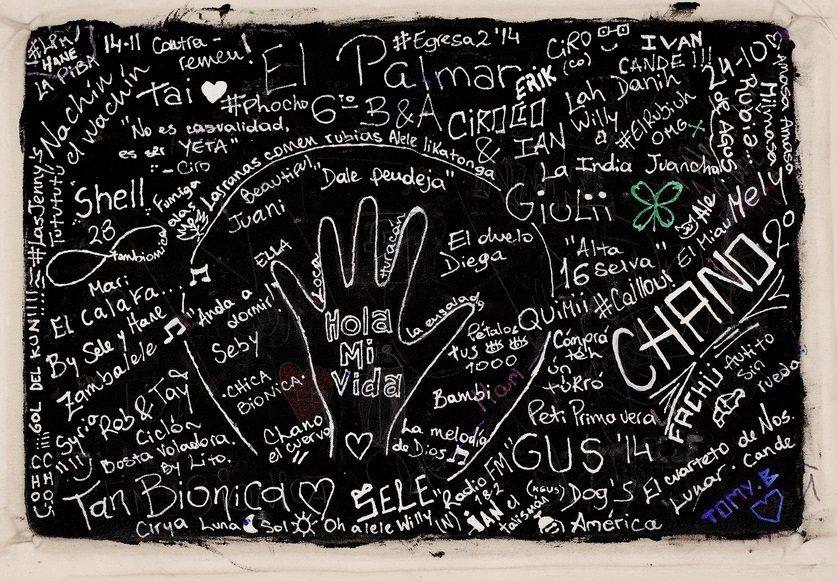 #LPM
HANE
LA PIBA
14-11 Contra-
remeu!
El Palmar
#Egresa2'14
CiRO
(CO)
IVAN
CANDE !!!
24-10
Nachin
el wachin
Tai
#Phocho
6to B&A
ERIK
CiRO
&
IAN
Lah Danih
Willy
#ElRubiuh
OMG
DR AGUS
Rubia:
Milmaso
Amaso Amaso
"No es casualidad,
es ser YETA"
- Ciro
Larranas comen rubias Alele likatonga
La India Juanchola
#LasJennys
Tutututu
Shell
"Fumiga
olas
Beautiful"
Juani
"Dale pendeja"
GiuLii
Ale
El Miau
Mely
23
tanbionica
Mari
El Calafa...
By Sele y Hane
Zambalele
ELLA
Loca
Huracán
El duelo
Diega
"Alta
16 selva"
#Caillou
CHANO
20
"Anda a
dormir!"
Seby
Hola
Mi
Vida
La ensalada
Pétalos
tus
1000
QUiMii
Comprá
teh
un
turro
-CHICA
BiONiCA-
Bambi
Mari
FACHU
Autito
sin
ruedas
Syrio
Rob & Tay
Ciclón
Bosta Voladora.
By Lito.
Chano
el cuervo
La melodía
de Dios
Peti Primavera
SOHC¡¡¡GOL DEL KUN!!!!
Tan Bionica
SELE
Radio FM"
"GUS '14
El cuarteto de Nos.
Lunar. Cande
Cirya Luna Sol
Oh alele Willy (N)
IAN el
talismán
(AGUS)
Dog's
América
TOMY.B